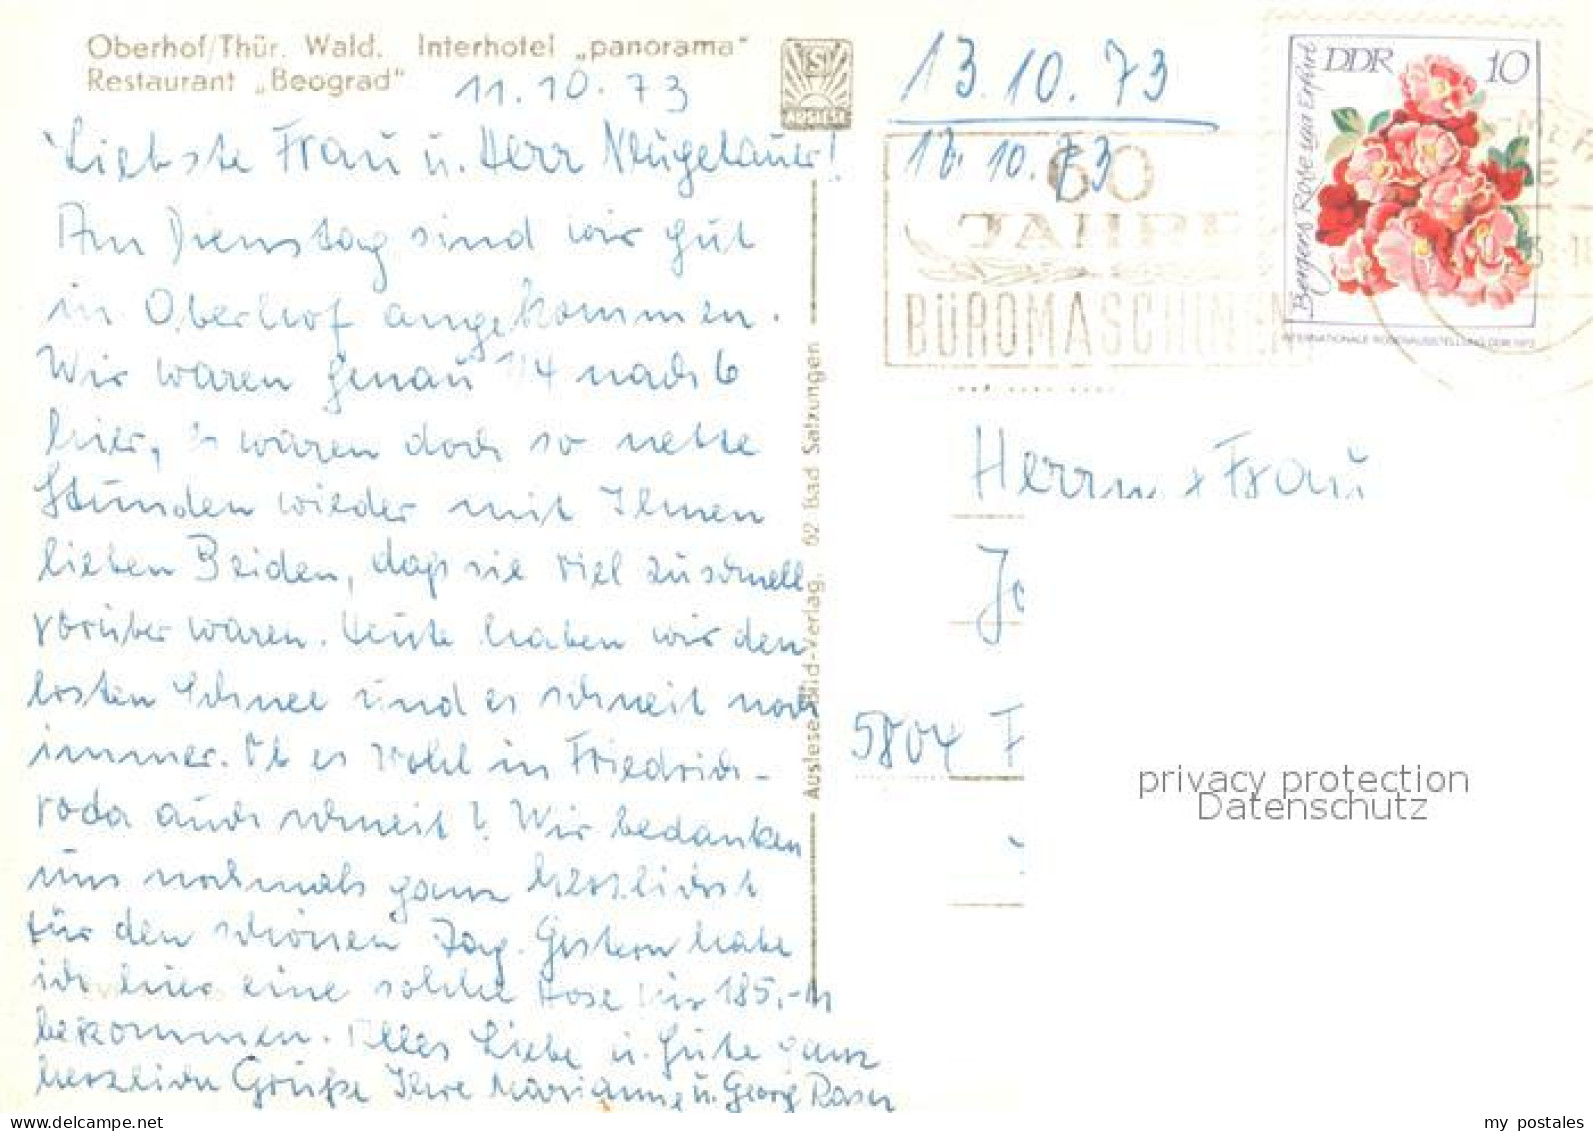 Oberhof/Thür. Wald. Interhotel „panorama"
Restaurant „Beograd"
11.10.73
Liebste Frau u. Herr Neugebauer!
Am Dienstag sind wir gut
in Oberhof angekommen.
Wir waren genau 1/4 nach 6
hier, es waren doch so nette
Stunden wieder mit Ihnen
lieben Beiden, daß sie viel zu schnell
vorüber waren. Heute haben wir den
ersten Schnee und es schneit noch
immer. Ob es wohl in Friedrich-
roda auch schneit? Wir bedanken
uns nochmals ganz herzlichst
für den schönen Tag. Gestern habe
ich hier eine solche Hose für 185,-M
bekommen. Alles Liebe u. Gute ganz
herzliche Grüße Ihre Marianne u. Georg
AUSLESE
Auslese-Bild-Verlag, 62 Bad Salzungen
13.10.73
13.10.73
60
JAHRE
BÜROMASCHINEN
DDR 10
Bergers Rose aus Erfurt
INTERNATIONALE ROSENAUSSTELLUNG DDR 1972
Herrn + Frau
Jo
5804 F
privacy protection
Datenschutz
my postales